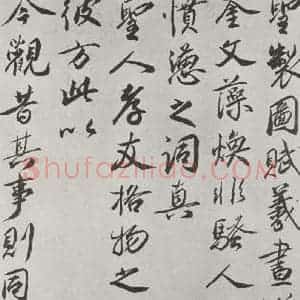 聖製圖賦羲畫
奎文藻煥非騷人
憤懣之詞真
聖人考文格物之
彼方此以
今觀昔其事則同
Shufaziliao.com